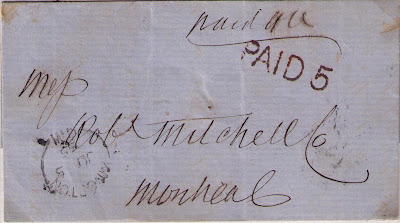 paid all
PAID 5
Mess
Robt Mitchell & Co
Montreal